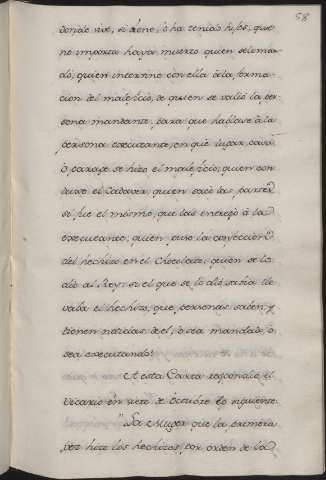 58
donde vive, si tiene, ò ha tenido hijos, que
no importa haya muerto quien se lo man-
dó, quien intervino con ella à la forma-
cion del maleficio, de quien se valió la per-
sona mandante, para que hablase à la
persona executante, en què lugar, casa
ò parage se hizo el maleficio, quien con
duxo el Cadaver, quien sacó las partes
si fue el mismo, que las entregó à la
executante, quien puso la confeccion
del hechizo en el Chocolate, quien se lo
dió al Rey, si el que se lo dió sabia lle
vaba el hechizo, que personas saben y
tienen noticias de èl, ò sea mandado, ò
sea executando.
A esta Carta responde el
Vicario en siete de Octubre lo siguiente
"La Muger que la primera
vez hizo los hechizos, por orden de la